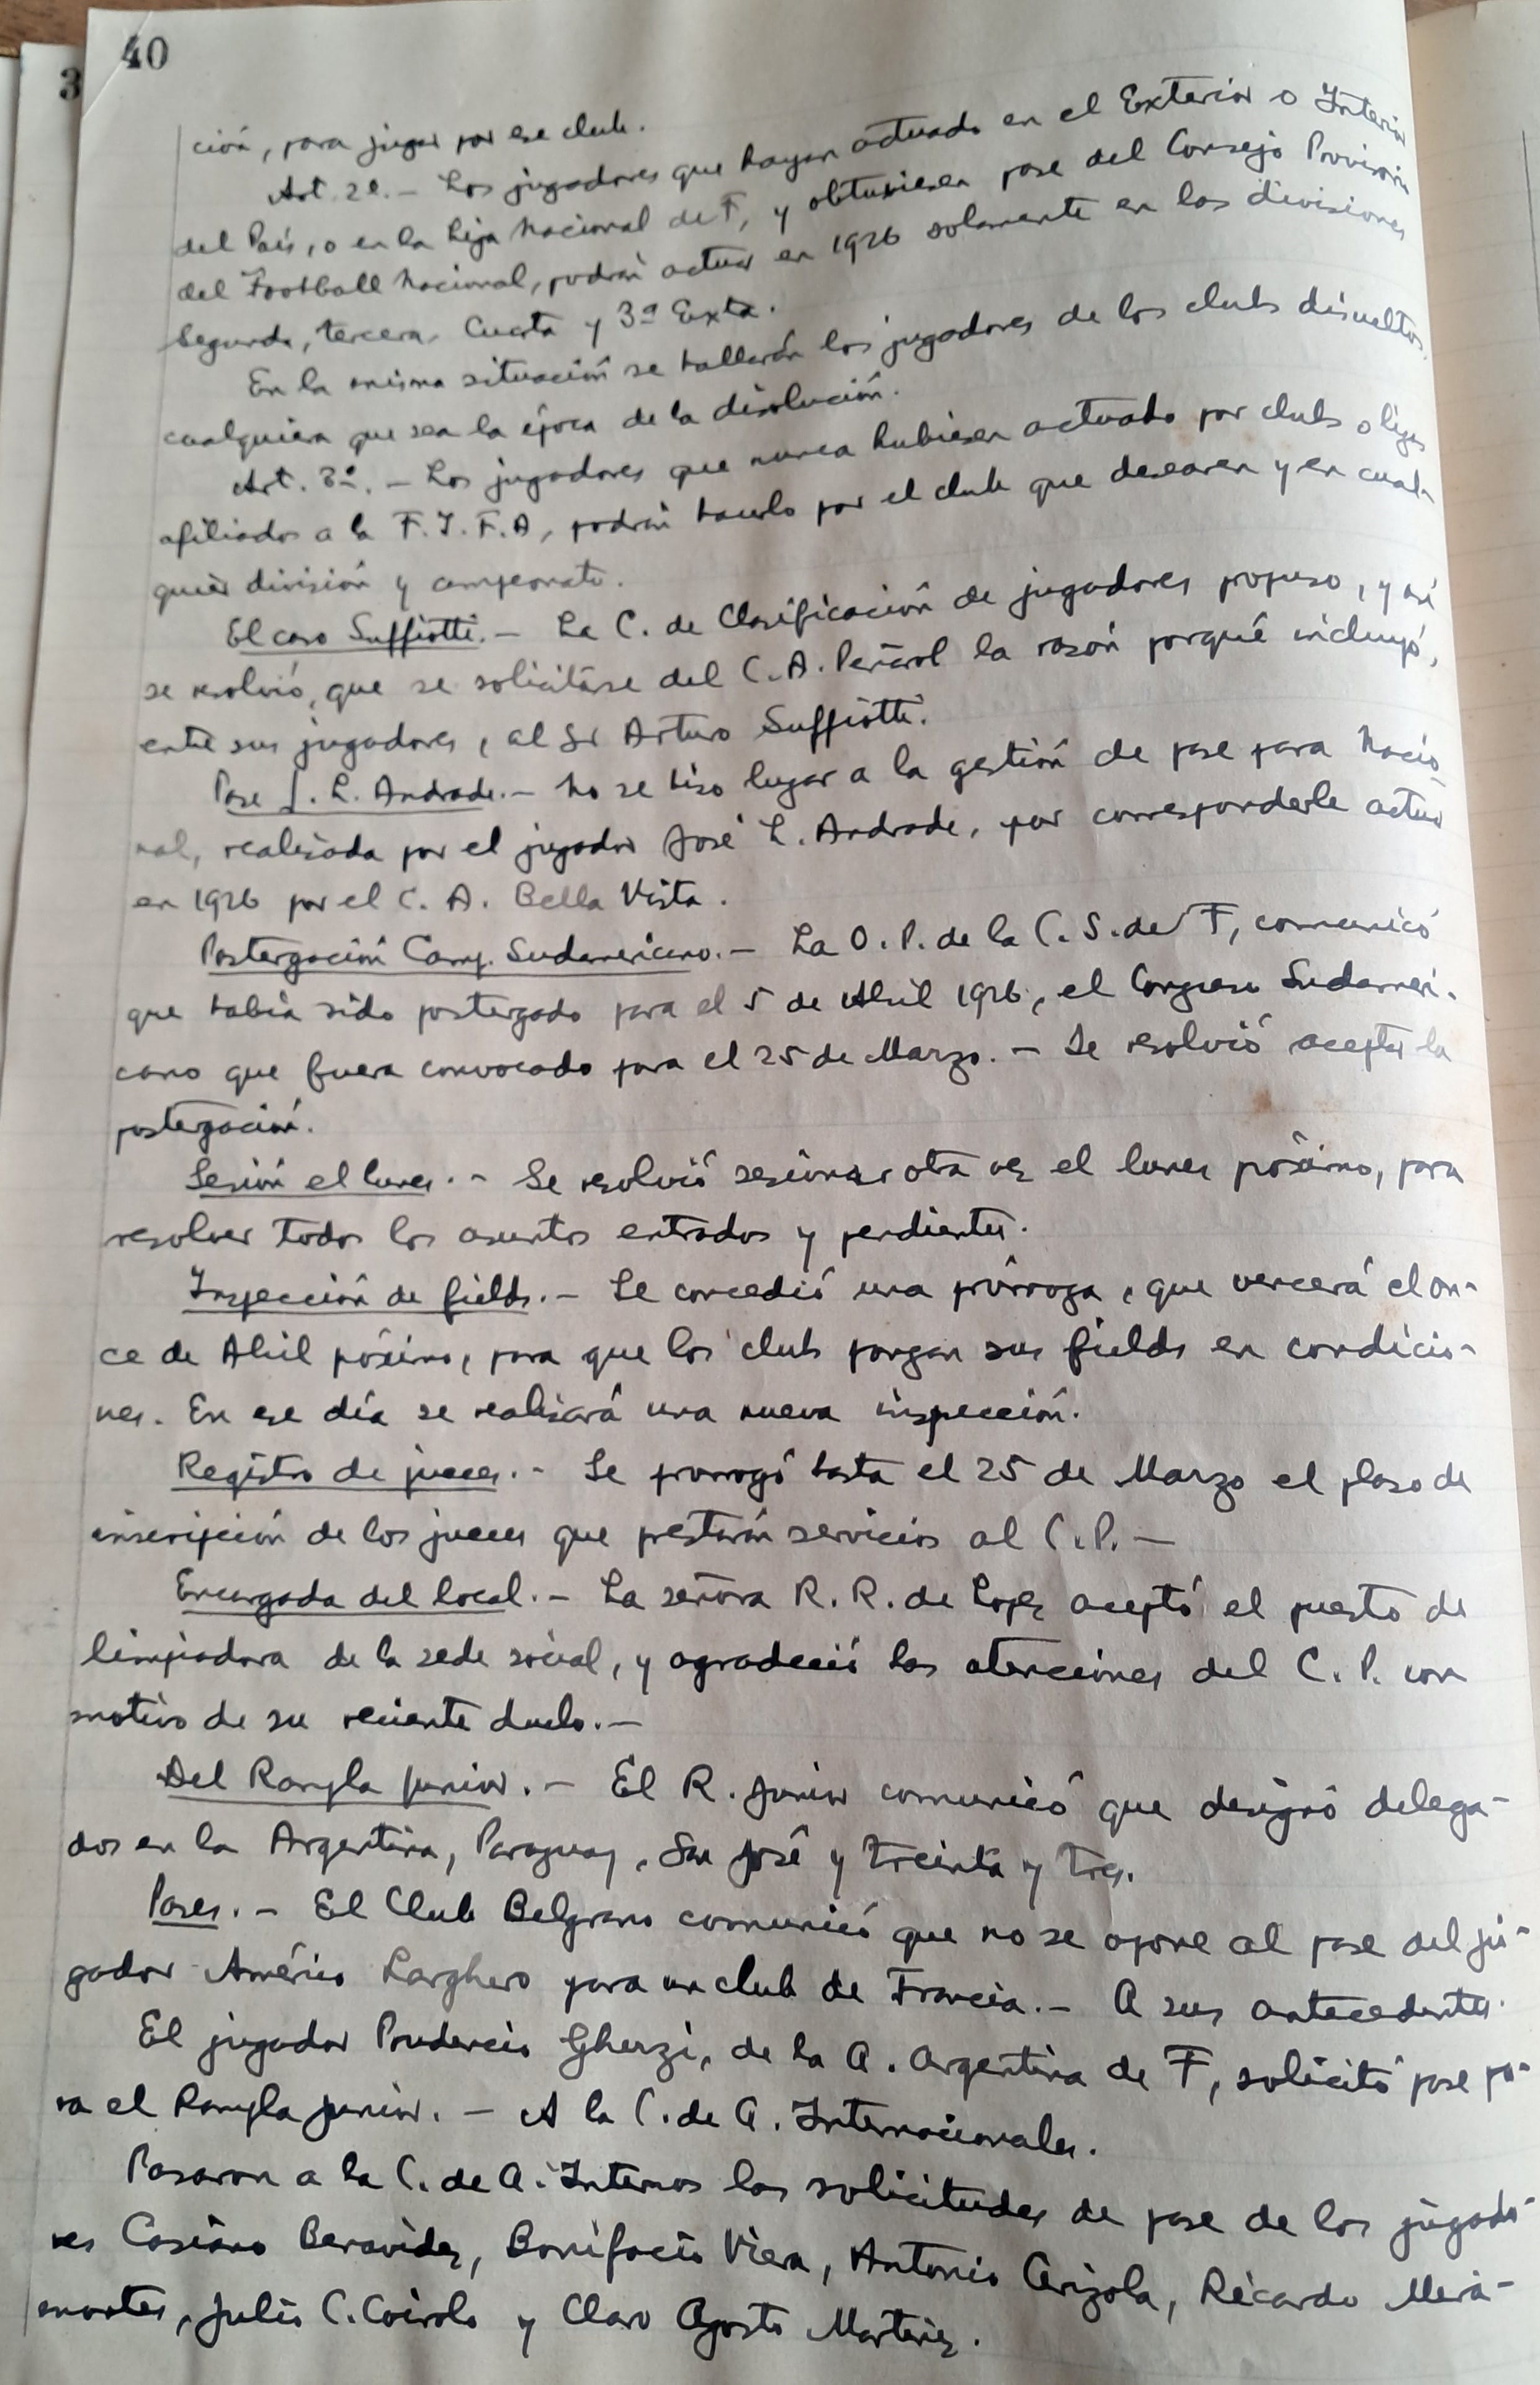 40
3
ción, para jugar por ese club.
Art. 2º. - Los jugadores que hayan actuado en el Exterior o Interior
del País, o en la Liga Nacional de F, y obtuviesen pase del Consejo Provisorio
del Football Nacional, podrán actuar en 1926 solamente en las divisiones
Segunda, tercera, Cuarta y 3ª Exta.
En la misma situación se hallarán los jugadores de los clubs disueltos,
cualquiera que sea la época de la disolución.
Art. 3º. - Los jugadores que nunca hubiesen actuado por clubs o ligas
afiliados a la F.I.F.A, podrán hacerlo por el club que desearen y en cual-
quier división y campeonato.
El caso Suffiotti. - La C. de Clasificación de jugadores propuso, y así
se resolvió, que se solicitase del C.A. Peñarol la razón porqué incluyó,
entre sus jugadores, al Sr Arturo Suffiotti.
Pase J. L. Andrade. - No se hizo lugar a la gestión de pase para Nacio-
nal, realizada por el jugador José L. Andrade, por corresponderle actuar
en 1926 por el C. A. Bella Vista.
Postergación Camp. Sudamericano. - La O.P. de la C.S. de F, comunicó
que había sido postergado para el 5 de Abril 1926, el Congreso Sudameri-
cano que fuera convocado para el 25 de Marzo. - Se resolvió aceptar la
postergación.
Sesión el lunes. - Se resolvió sesionar otra vez el lunes próximo, para
resolver todos los asuntos entrados y pendientes.
Inspección de fields. - Se concedió una prórroga, que vencerá el on-
ce de Abril próximo, para que los clubs pongan sus fields en condicio-
nes. En ese día se realizará una nueva inspección.
Registro de jueces. - Se prorrogó hasta el 25 de Marzo el plazo de
inscripción de los jueces que prestarán servicios al C.P. -
Encargada del local. - La señora R. R. de Lopez aceptó el puesto de
limpiadora de la sede social, y agradeció las atenciones del C. P. con
motivo de su reciente duelo. -
Del Rampla Junior. - El R. Junior comunicó que designó delega-
dos en la Argentina, Paraguay, San José y Treinta y Tres.
Pases. - El Club Belgrano comunicó que no se opone al pase del ju-
gador Américo Larghero para un club de Francia. - A sus antecedentes.
El jugador Prudencio Gherzi, de la A. Argentina de F, solicitó pase pa-
ra el Rampla Junior. - A la C. de A. Internacionales.
Pasaron a la C. de A. Internos las solicitudes de pase de los jugado-
res Casiano Benavidez, Bonifacio Viera, Antonio Arizola, Ricardo Mira-
montes, Julio C. Coirolo y Claro Agosto Martinez.